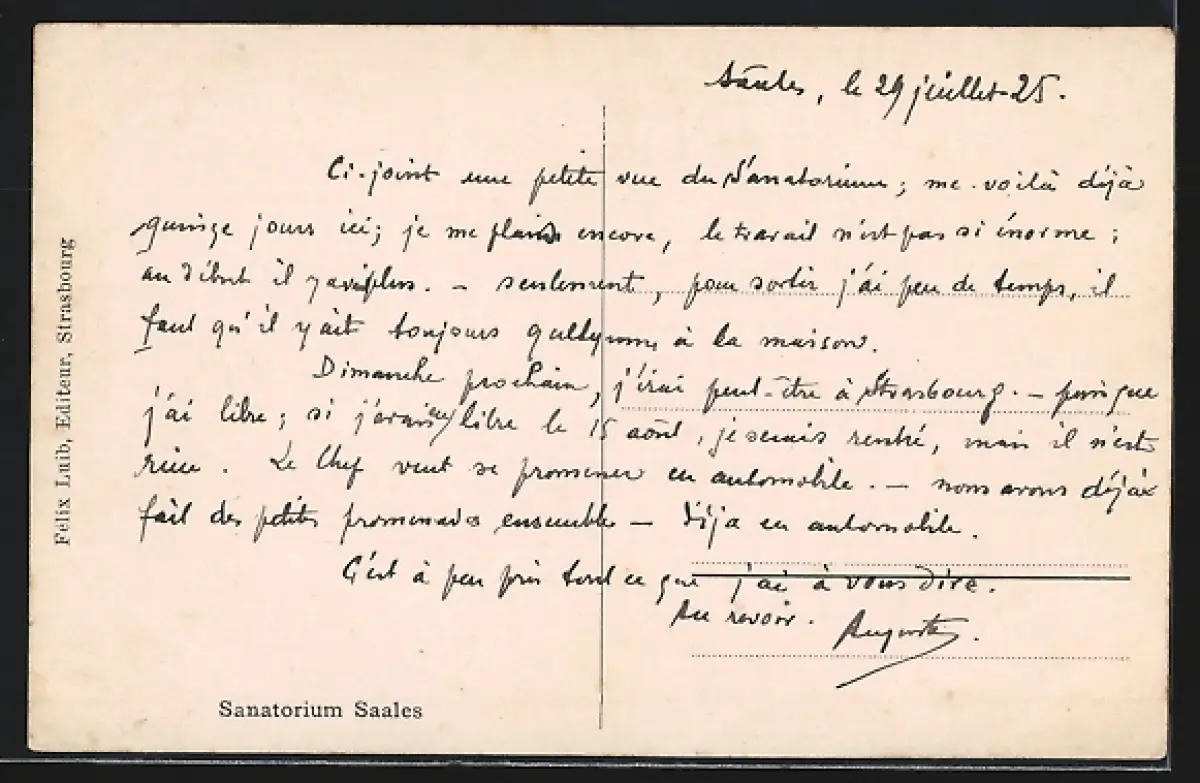 Saales, le 29 juillet-25.
Ci-joint une petite vue du Sanatorium; me voilà déjà
quinze jours ici; je me plais encore, le travail n'est pas si énorme;
au début il y avait plus. — seulement, pour sortir j'ai peu de temps, il
faut qu'il y ait toujours quelqu'un à la maison.
Dimanche prochain, j'irai peut-être à Strasbourg. — puisque
j'ai libre; si j'avais eu libre le 15 août, je serais rentré, mais il n'est
rien. Le Chef veut se promener en automobile. — nous avons déjà
fait des petites promenades ensemble — déja en automobile.
C'est à peu près tout ce que j'ai à vous dire.
Au revoir. Auguste.
Sanatorium Saales
Felix Luib, Editeur, Strasbourg